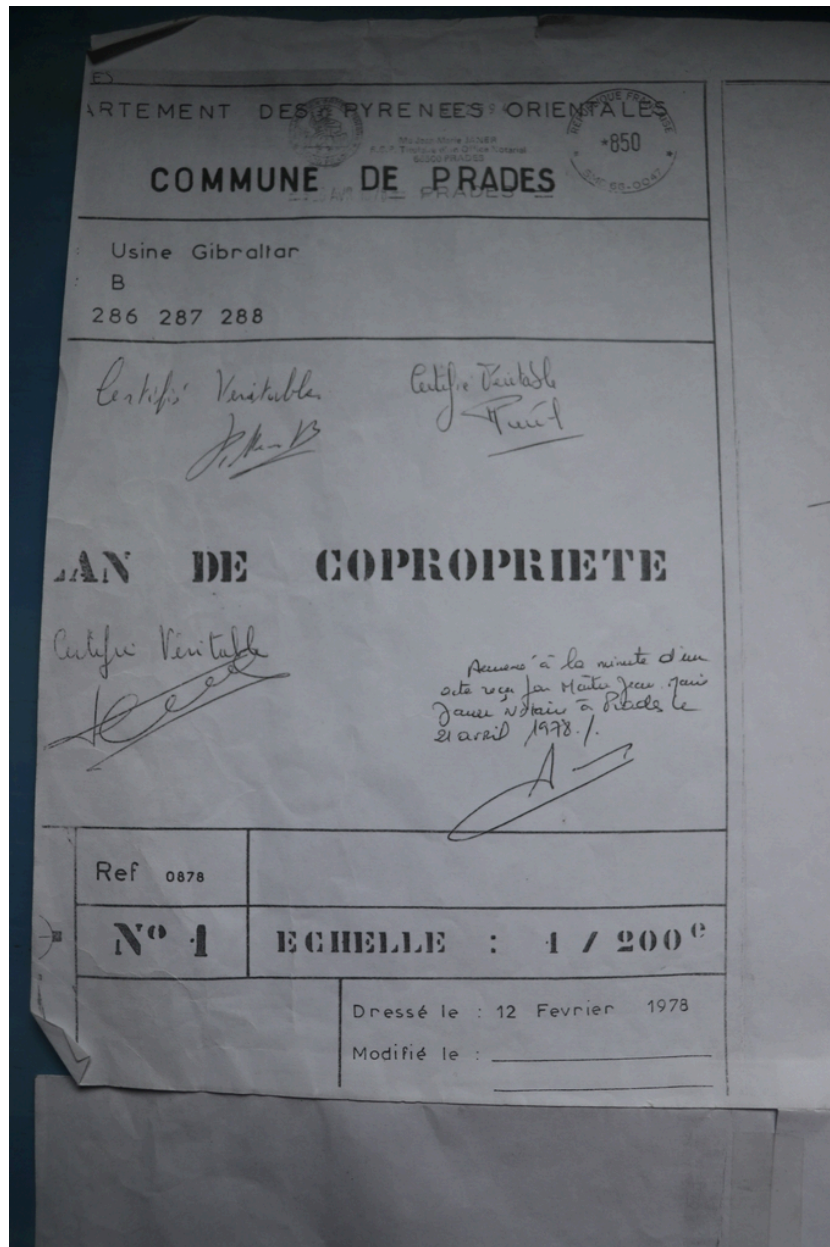 ES
ARTEMENT DES PYRENEES ORIENTALES
REPUBLIQUE FRANÇAISE
*850
Me Jean-Marie JANER
Office Notarial
PRADES
COMMUNE DE PRADES
PRADES
: Usine Gibraltar
: B
286 287 288
Certifié Véritable
Certifié Véritable
LAN DE COPROPRIETE
Certifié Véritable
Annexé à la minute d'un
acte reçu par Maître Jean Marie
Janer Notaire à Prades le
21 avril 1978./.
Ref 0878
N° 1 ECHELLE : 1 / 200e
Dressé le : 12 Fevrier 1978
Modifié le :